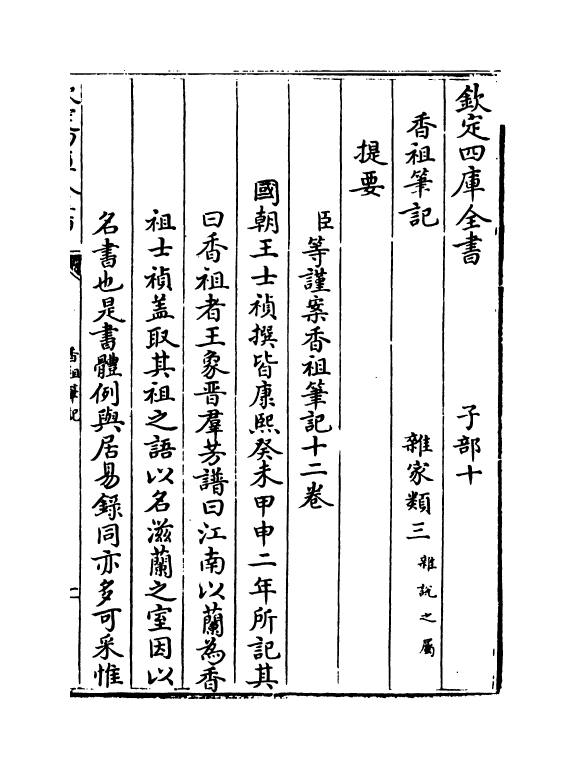 欽定四庫全書 子部十
香祖筆記 雜家類三 雜說之屬
提要
臣等謹案香祖筆記十二卷
國朝王士禎撰皆康熙癸未甲申二年所記其
曰香祖者王象晉羣芳譜曰江南以蘭為香
祖士禎蓋取其祖之語以名滋蘭之室因以
名書也是書體例與居易錄同亦多可采惟
香祖筆記